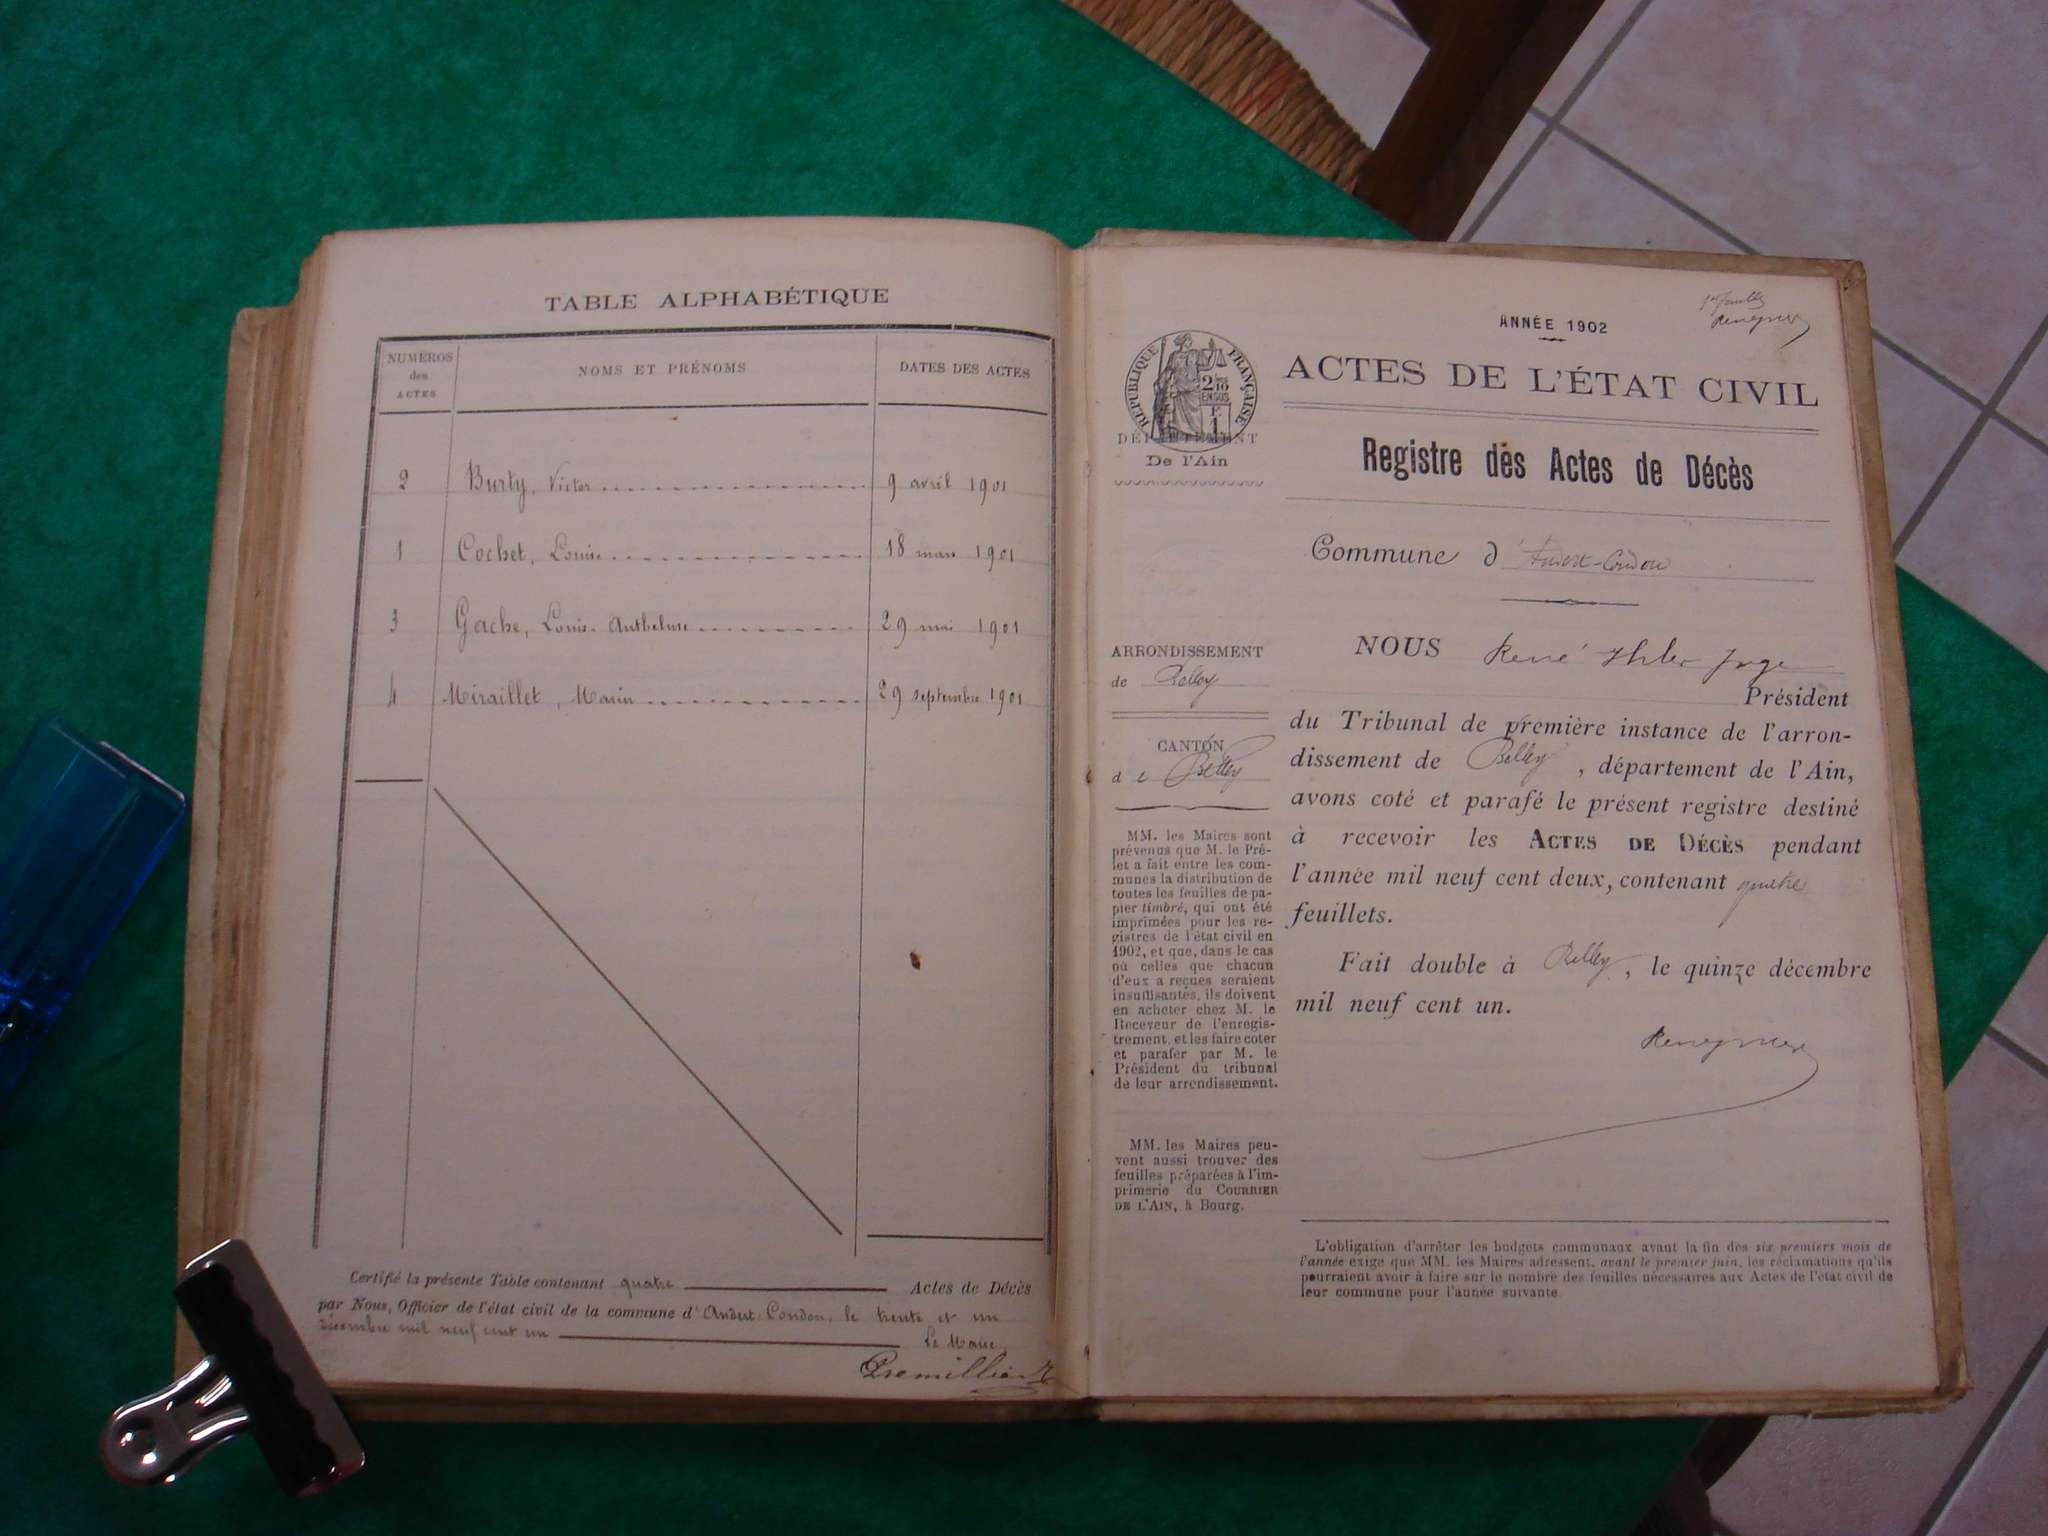 TABLE ALPHABÉTIQUE
NUMÉROS
des
ACTES
NOMS ET PRÉNOMS
DATES DES ACTES
2 Burty, Victor 9 avril 1901
1 Cochet, Louise 18 mars 1901
3 Gache, Louis-Anthelme 29 mai 1901
4 Miraillet, Marin 29 septembre 1901
Certifié la présente Table contenant quatre Actes de Décès
par Nous, Officier de l'état civil de la commune d'Andert-Condon, le trente et un
décembre mil neuf cent un
Le Maire,
Premillieu
ANNÉE 1902
RÉPUBLIQUE FRANÇAISE
ACTES DE L'ÉTAT CIVIL
DÉPARTEMENT
De l'Ain
Registre des Actes de Décès
Commune d'Andert-Condon
ARRONDISSEMENT
de Belley
CANTON
de Belley
MM. les Maires sont
prévenus que M. le Pré-
fet a fait entre les com-
munes la distribution de
toutes les feuilles de pa-
pier timbré, qui ont été
imprimées pour les re-
gistres de l'état civil en
1902, et que, dans le cas
où celles que chacun
d'eux a reçues seraient
insuffisantes, ils doivent
en acheter chez M. le
Receveur de l'enregis-
trement, et les faire coter
et parafer par M. le
Président du tribunal
de leur arrondissement.
MM. les Maires peu-
vent aussi trouver des
feuilles préparées à l'im-
primerie du COURRIER
DE L'AIN, à Bourg.
NOUS René Ihler Juge
Président
du Tribunal de première instance de l'arron-
dissement de Belley, département de l'Ain,
avons coté et parafé le présent registre destiné
à recevoir les ACTES DE DÉCÈS pendant
l'année mil neuf cent deux, contenant quatre
feuillets.
Fait double à Belley, le quinze décembre
mil neuf cent un.
L'obligation d'arrêter les budgets communaux avant la fin des six premiers mois de
l'année exige que MM. les Maires adressent, avant le premier juin, les réclamations qu'ils
pourraient avoir à faire sur le nombre des feuilles nécessaires aux Actes de l'état civil de
leur commune pour l'année suivante.